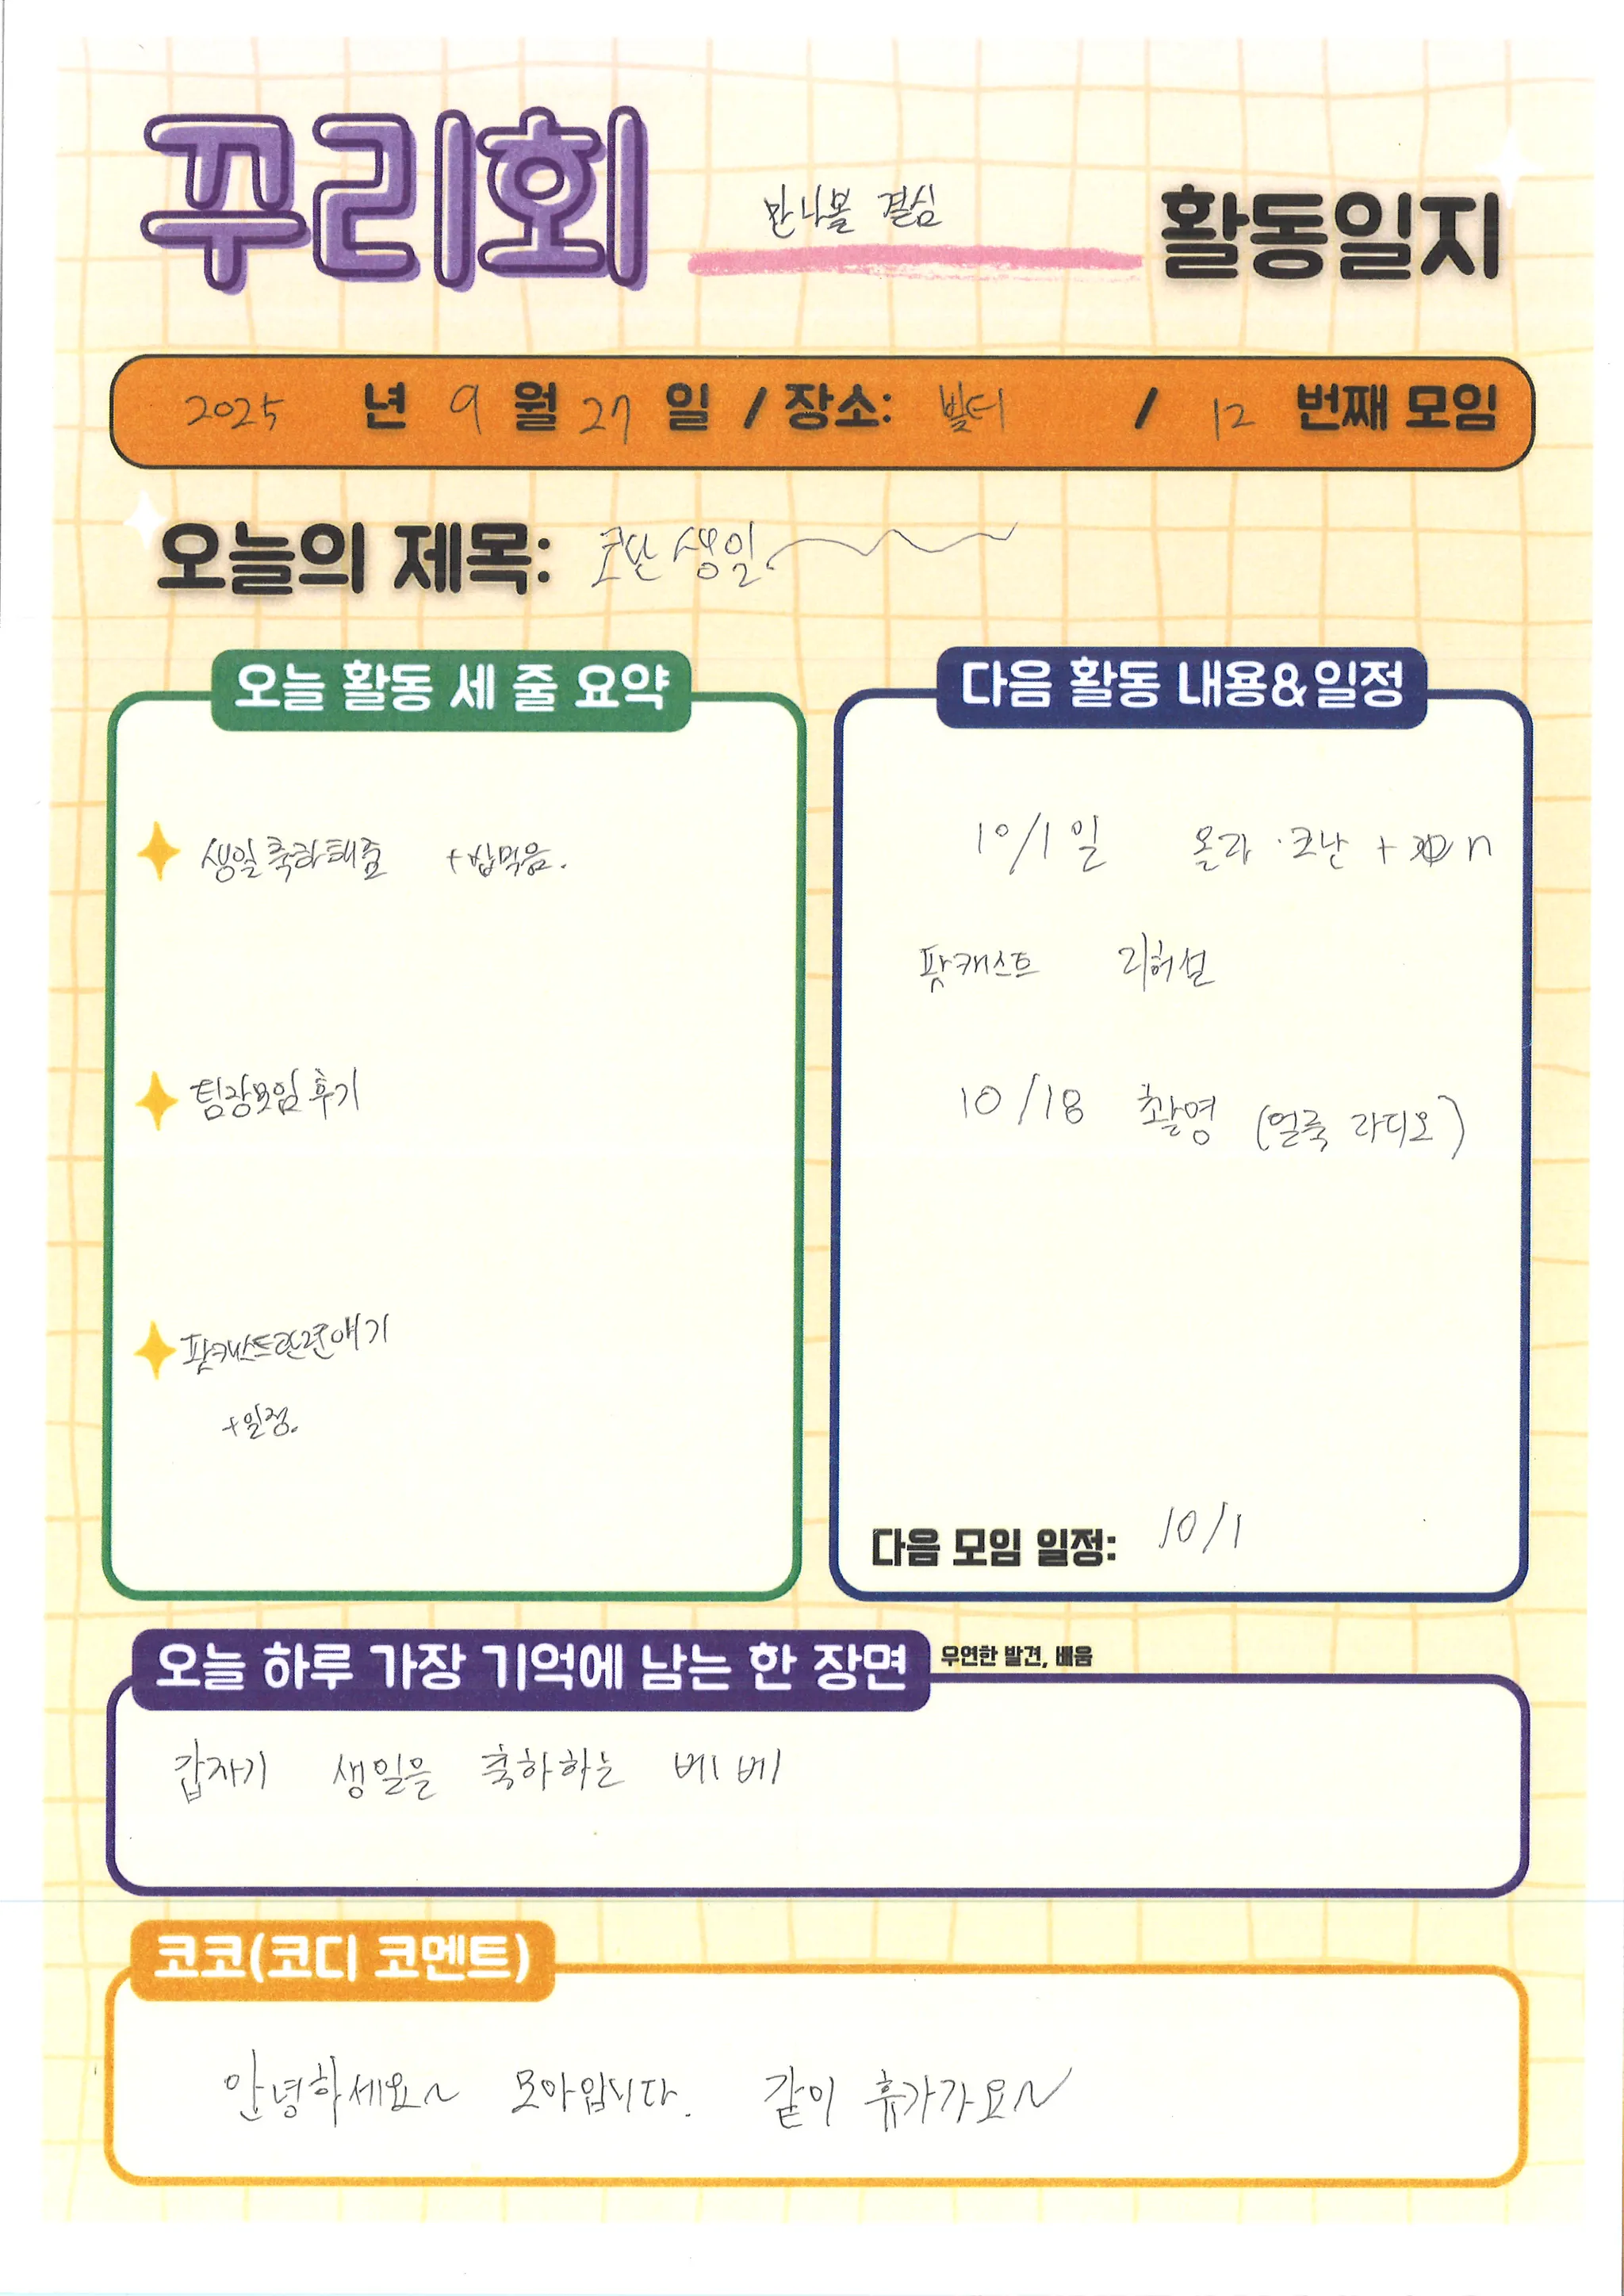 꾸리회 만나볼 결심 활동일지
2025 년 9 월 27 일 / 장소: 빌더 / 12 번째 모임
오늘의 제목: 코난 생일
오늘 활동 세 줄 요약
생일축하해줌 +밥먹음.
팀장모임 후기
팟캐스트관련얘기
+일정.
다음 활동 내용&일정
10/1 일 올라 · 코난 + n
팟캐스트 리허설
10/18 촬영 (얼룩 라디오)
다음 모임 일정: 10/1
오늘 하루 가장 기억에 남는 한 장면 우연한 발견, 배움
갑자기 생일을 축하하는 베베
코코(코디 코멘트)
안녕하세요~ 모아입니다. 같이 휴가가요~